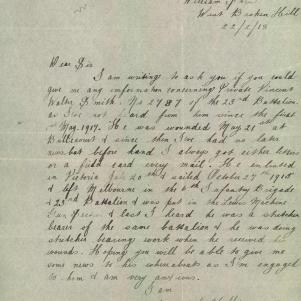 William St
West Broken Hill
22/2/18
Dear Sir
I am writing to ask you if you could
give me any information concerning Private Vincent
Walter Smith. No 2787 of the 23rd Battalion
as I've not heard from him since the first
of May. 1917. He was wounded May 21st at
Bullecourt & since then I've had no later
news but before hand I always got either letter
or a field card every mail. He enlisted
in Victoria July 20th & sailed October 27th 1915
& left Melbourne in the 6th Infantry Brigade
& 23rd Battalion & was put in the Lewis Machine
Gun Section & last I heard he was a stretcher
bearer of the same battalion & he was doing
stretcher bearing work when he received his
wounds. Hoping you will be able to give me
some news to his whereabouts as I'm engaged
to him & am very anxious.
I am